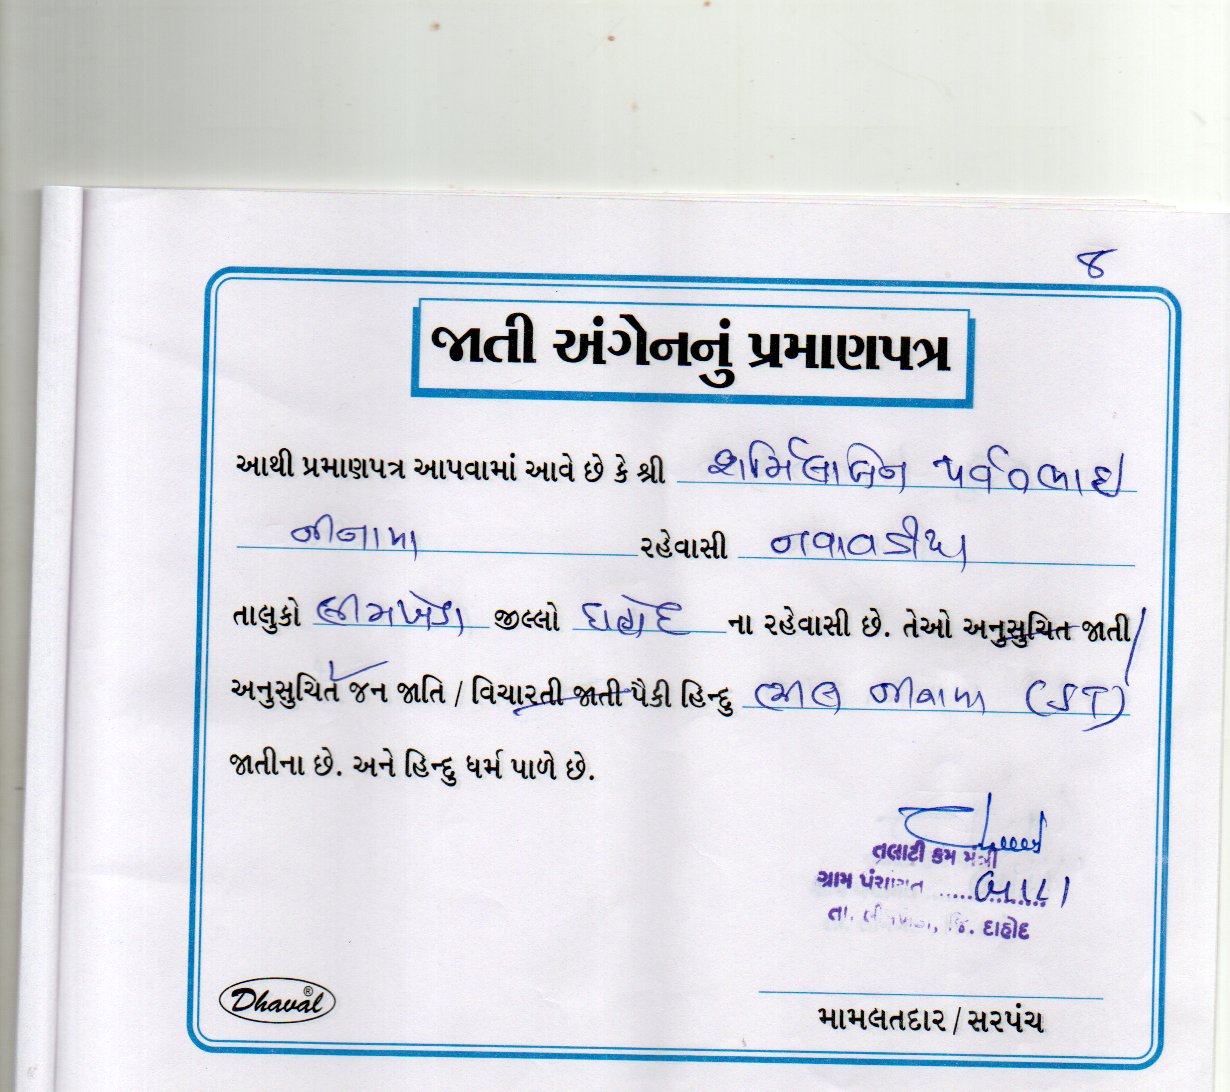 ૪
જાતી અંગેનનું પ્રમાણપત્ર
આથી પ્રમાણપત્ર આપવામાં આવે છે કે શ્રી શર્મિલાબેન પર્વતભાઇ
નીનામા રહેવાસી નવાવડીયા
તાલુકો લીમખેડા જીલ્લો દાહોદ ના રહેવાસી છે. તેઓ અનુસુચિત જાતી/
અનુસુચિત જન જાતિ / વિચારતી જાતી પૈકી હિન્દુ ભીલ નીનામા (ST)
જાતીના છે. અને હિન્દુ ધર્મ પાળે છે.
તલાટી કમ મંત્રી
ગ્રામ પંચાયત
તા. લીમખેડા, જિ. દાહોદ
Dhaval®
મામલતદાર / સરપંચ